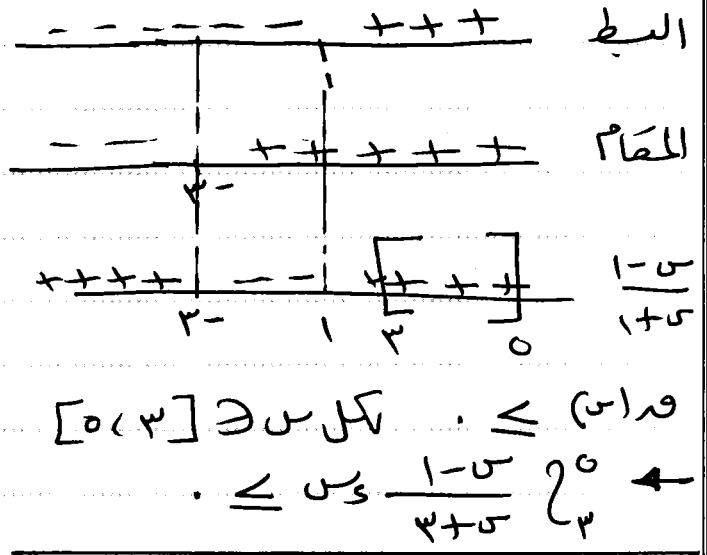 البسط - - - - - - + + +
المقام - - + + + + +
٣-
س-١/س+١ + + + + - - [+ + + +]
٣- ١ ٣ ٥
ق(س) ≥ ٠ لكل س ∈ [٣،٥]
← ∫٣^٥ س-١/س+٣ ءس ≥ ٠